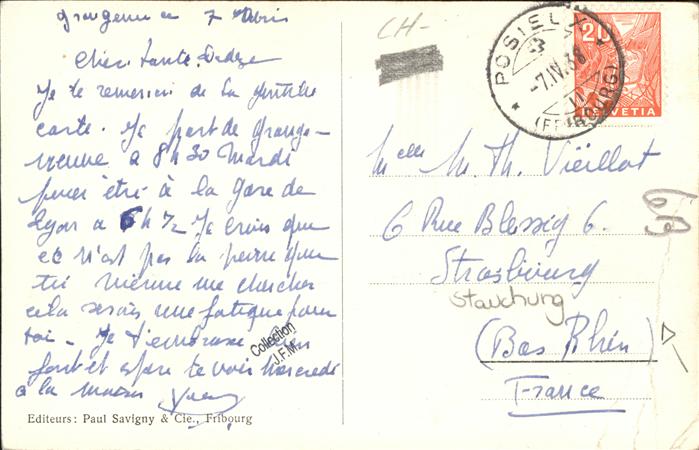 grangeneuve 7 Avril
Chère tante
Je te remercie de la gentille
carte. Je part de grange-
neuve a 8 h 30 Mardi
pour être à la Gare de
Lyon a 6 h 1/2 Je crois que
ce n'est pas la peine que
tu vienne me chercher
cela serais une fatigue pour
toi - Je t'embrasse bien
fort et espère te voir mercredi
à la maison Yvan
Editeurs: Paul Savigny & Cie., Fribourg
Collection
J.F.M.
CH-
POSIEUX
-7.IV.38
(FRIBOURG)
20
HELVETIA
Melle M. Th. Viëillot
6 Rue Blessig 6.
Strasbourg
Stauchung
(Bas Rhin)
France